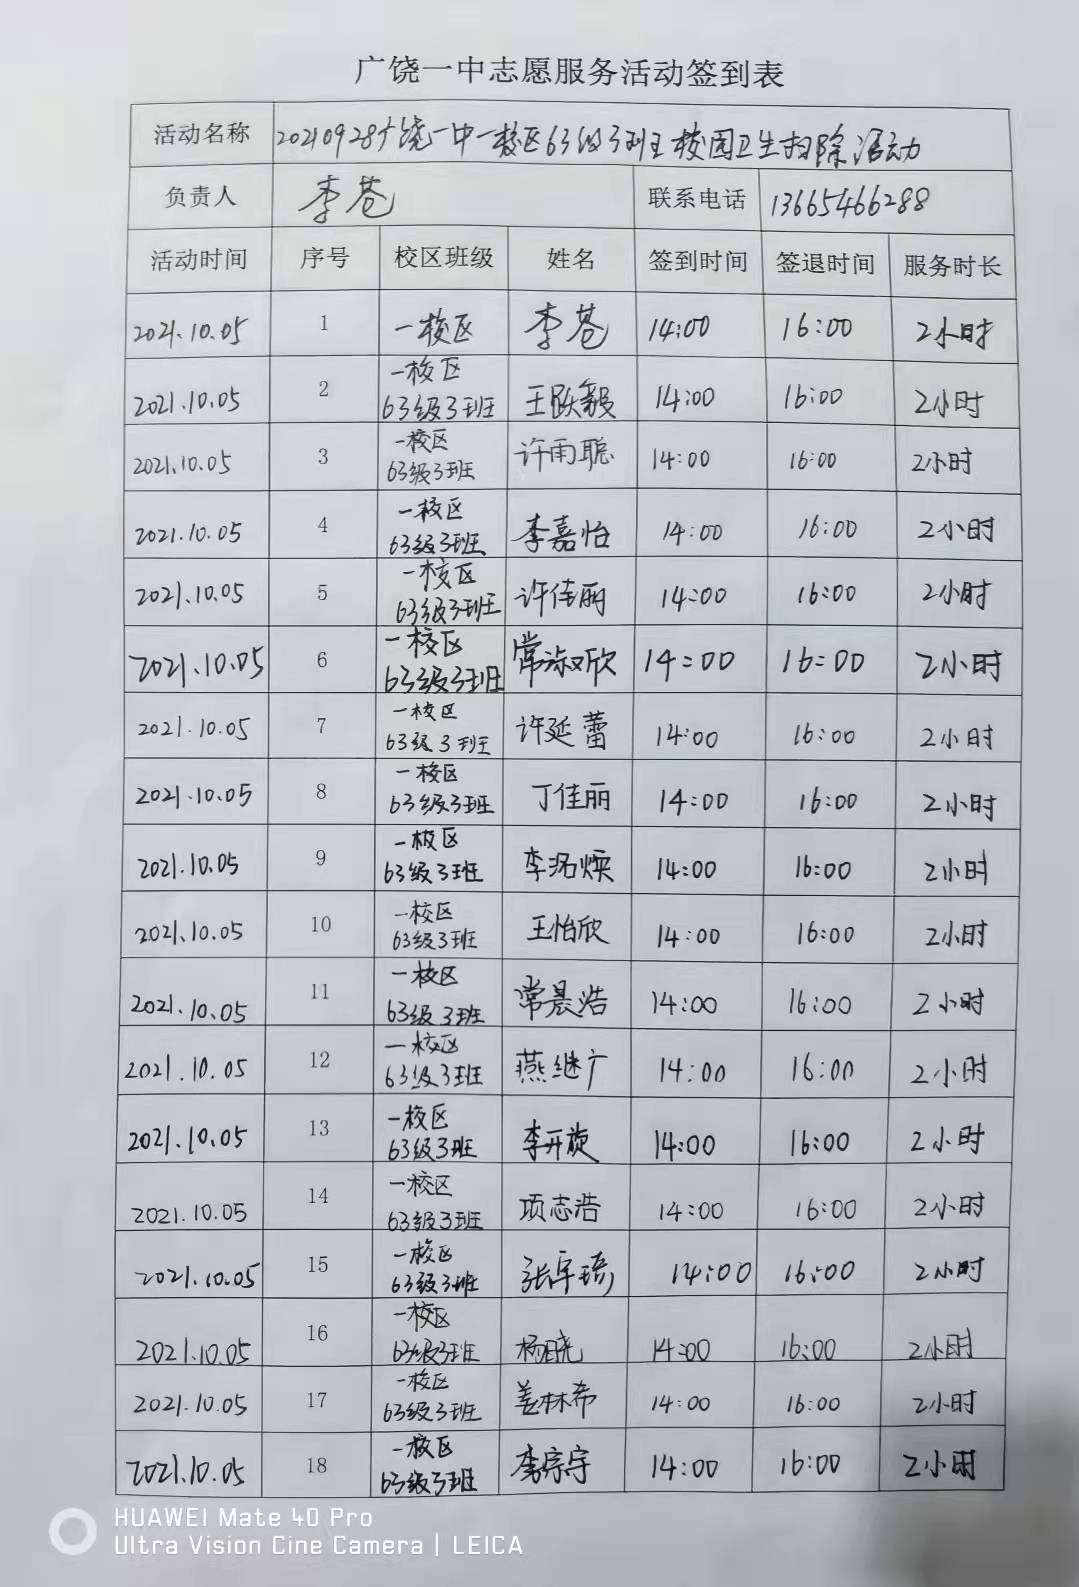 广饶一中志愿服务活动签到表
活动名称 20210928广饶一中一校区63级3班校园卫生扫除活动
负责人 李苍 联系电话 13665466288
活动时间 序号 校区班级 姓名 签到时间 签退时间 服务时长
2021.10.05 1 一校区 李苍 14:00 16:00 2小时
2021.10.05 2 一校区 63级3班 王跃毅 14:00 16:00 2小时
2021.10.05 3 一校区 63级3班 许雨聪 14:00 16:00 2小时
2021.10.05 4 一校区 63级3班 李嘉怡 14:00 16:00 2小时
2021.10.05 5 一校区 63级3班 许佳丽 14:00 16:00 2小时
2021.10.05 6 一校区 63级3班 常淑欣 14:00 16:00 2小时
2021.10.05 7 一校区 63级3班 许延蕾 14:00 16:00 2小时
2021.10.05 8 一校区 63级3班 丁佳丽 14:00 16:00 2小时
2021.10.05 9 一校区 63级3班 14:00 16:00 2小时
2021.10.05 10 一校区 63级3班 王怡欣 14:00 16:00 2小时
2021.10.05 11 一校区 63级3班 常晨浩 14:00 16:00 2小时
2021.10.05 12 一校区 63级3班 燕继广 14:00 16:00 2小时
2021.10.05 13 一校区 63级3班 李开旋 14:00 16:00 2小时
2021.10.05 14 一校区 63级3班 项志浩 14:00 16:00 2小时
2021.10.05 15 一校区 63级3班 14:00 16:00 2小时
2021.10.05 16 一校区 63级3班 杨晓 14:00 16:00 2小时
2021.10.05 17 一校区 63级3班 姜林希 14:00 16:00 2小时
2021.10.05 18 一校区 63级3班 李宗宇 14:00 16:00 2小时
HUAWEI Mate 40 Pro
Ultra Vision Cine Camera | LEICA